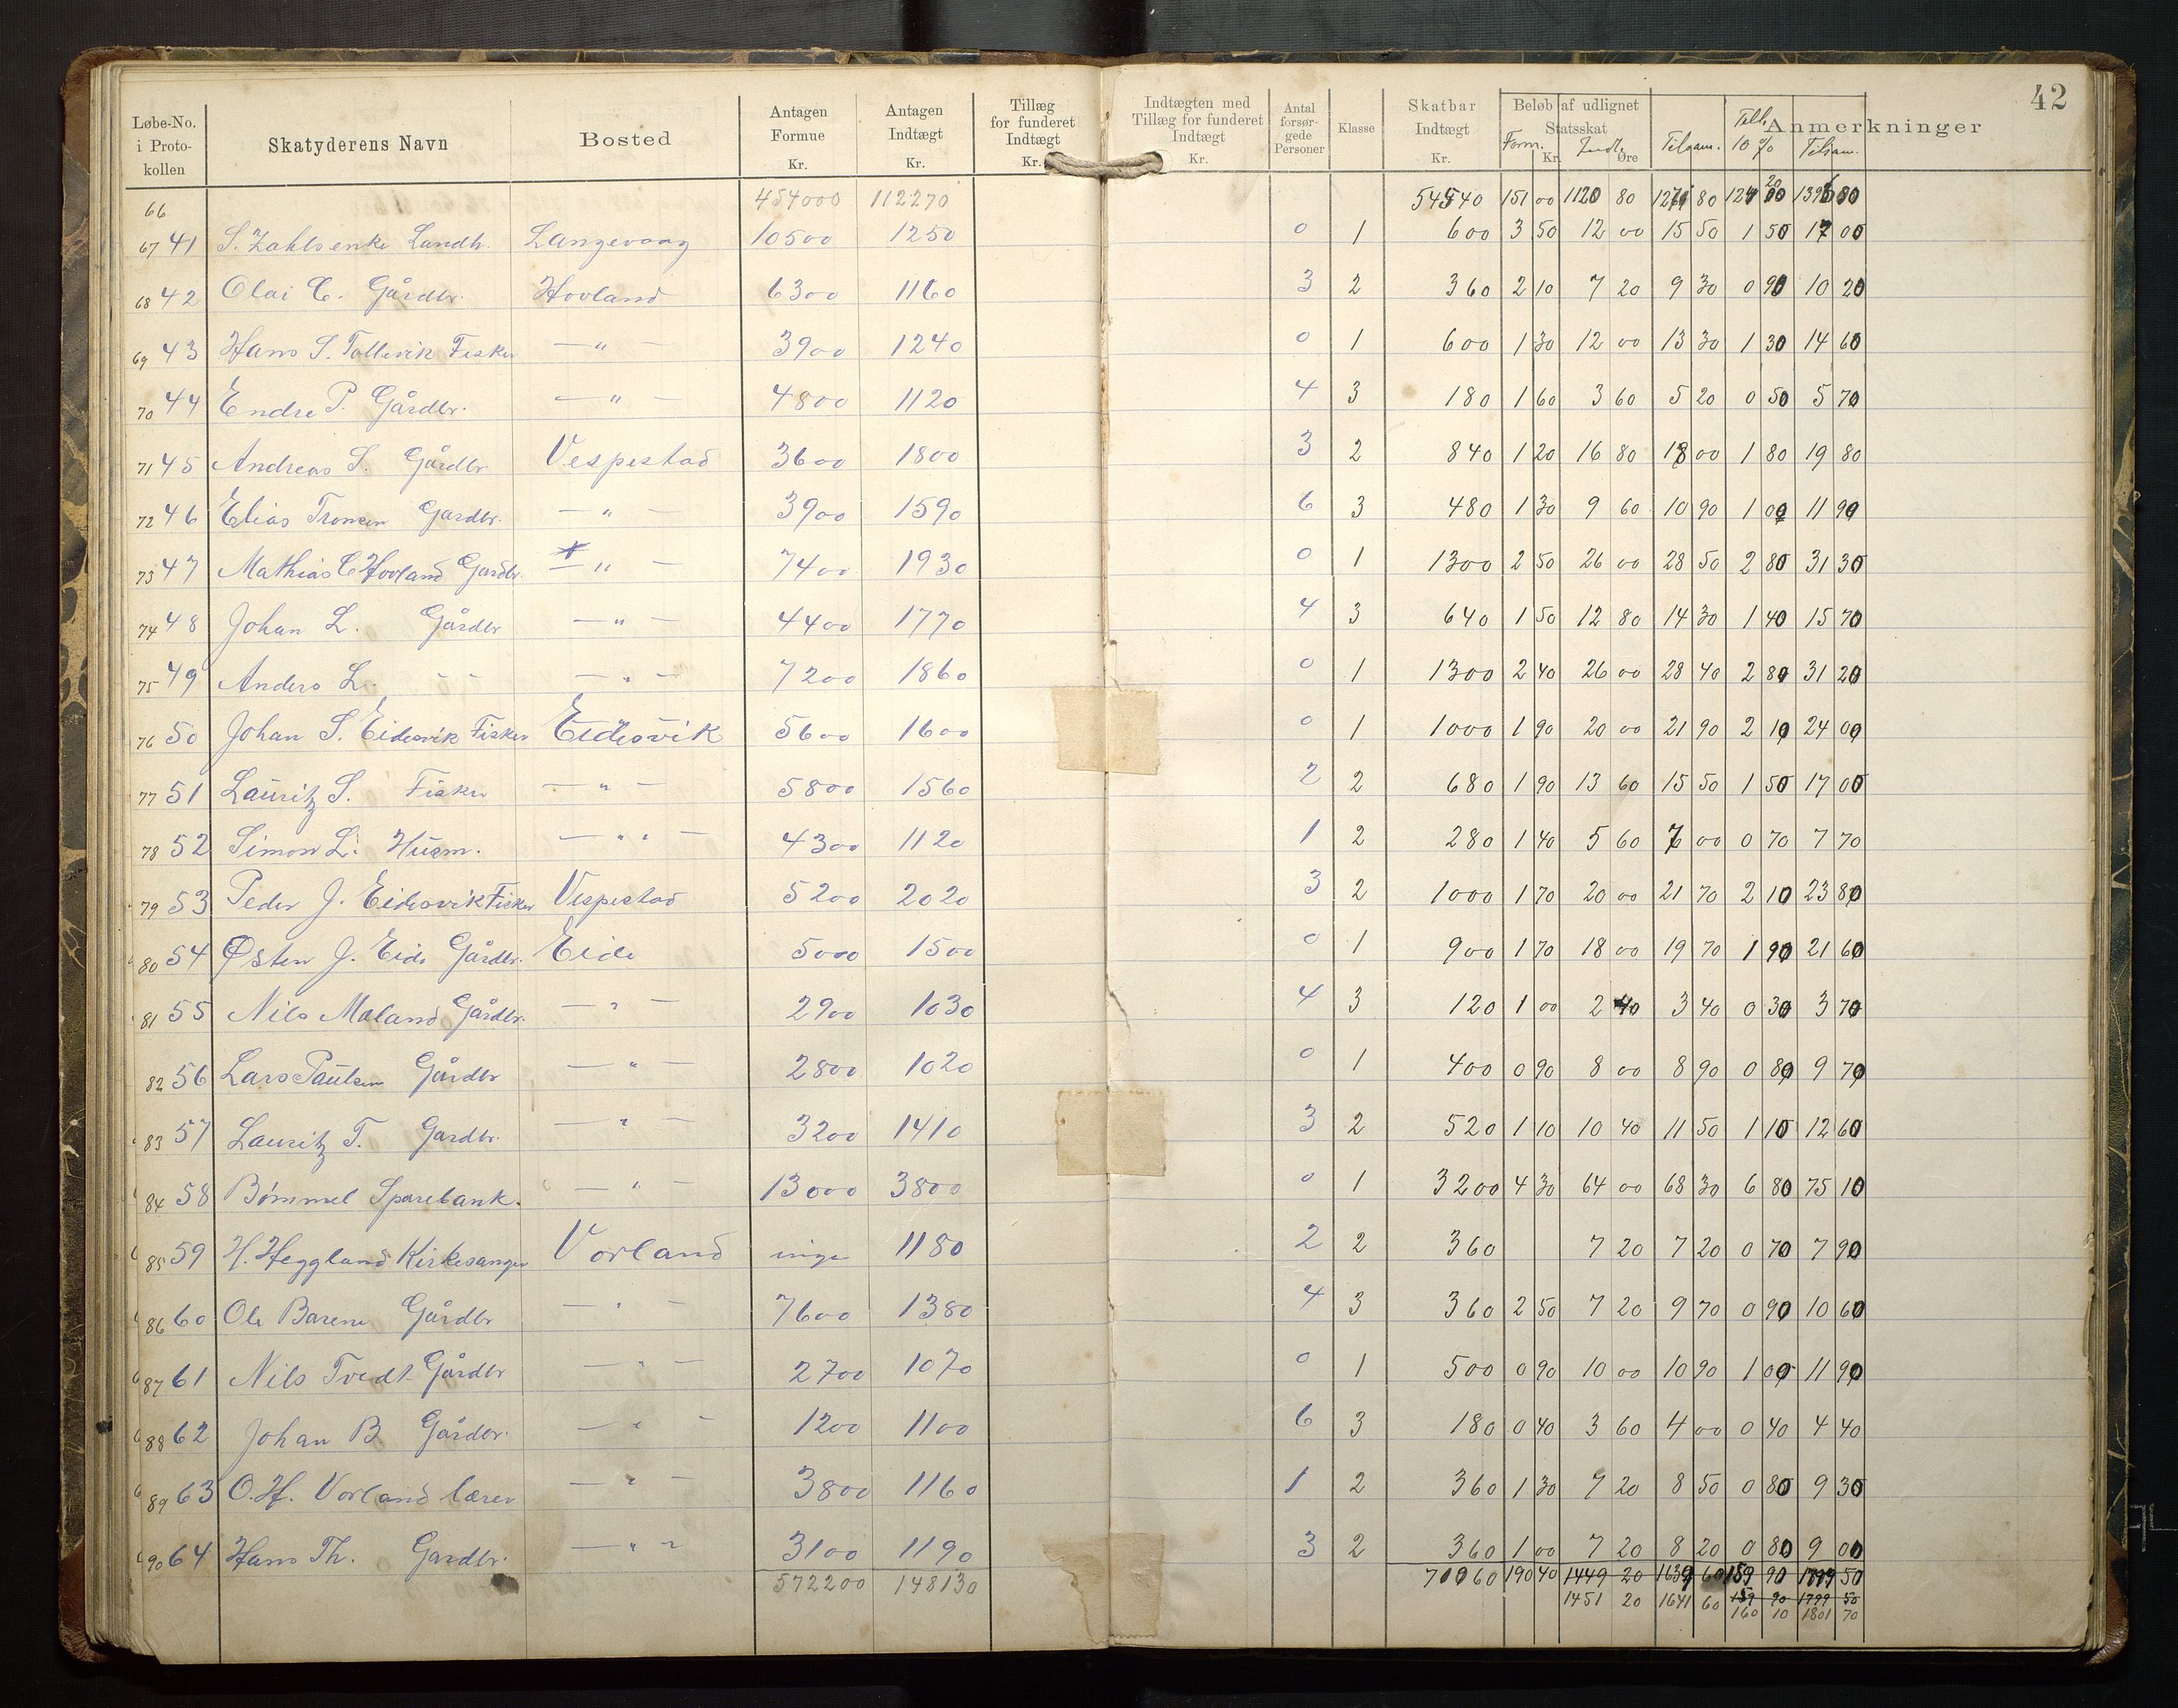 42
Løbe-No. i Protokollen | Skatyderens Navn | Bosted | Antagen Formue Kr. | Antagen Indtægt Kr. | Tillæg for funderet Indtægt Kr. | Indtægten med Tillæg for funderet Indtægt Kr. | Antal forsørgede Personer | Klasse | Skatbar Indtægt Kr. | Beløb af udlignet Statsskat Kr. Øre | Form. | Indt. | Tilsam. | Till. 10 % | Tilsam. | Anmerkninger
66 454000 112270 54540 151 00 1120 80
67 41 S. Zahlsenke Landh. Langevaag 10500 1250 0 1 600 3 50 12 00 15 50 1 50 17 00
68 42 Olai C. Gårdbr. Hovland 6300 1160 3 2 360 2 10 7 20 9 30 0 90 10 20
69 43 Hans S. Tollevik Fisker — " — 3900 1240 0 1 600 1 30 12 00 13 30 1 30 14 60
70 44 Endre P. Gårdbr. — " — 4800 1120 4 3 180 1 60 3 60 5 20 0 50 5 70
71 45 Andreas S. Gårdbr Vespestad 3600 1800 3 2 840 1 20 16 80 18 00 1 80 19 80
72 46 Elias Tronsen Gardbr. — " — 3900 1590 6 3 480 1 30 9 60 10 90 1 00 11 90
73 47 Mathias C Hovland Gardbr. — " — 7400 1930 0 1 1300 2 50 26 00 28 50 2 80 31 30
74 48 Johan L. Gårdbr — " — 4400 1770 4 3 640 1 50 12 80 14 30 1 40 15 70
75 49 Anders L. - - — " — 7200 1860 0 1 1300 2 40 26 00 28 40 2 80 31 20
76 50 Johan S. Eidesvik Fisker Eidesvik 5600 1600 0 1 1000 1 90 20 00 21 90 2 10 24 00
77 51 Lauritz S. Fisker — " — 5800 1560 2 2 680 1 90 13 60 15 50 1 50 17 00
78 52 Simon L. Husm. — " — 4300 1120 1 2 280 1 40 5 60 7 00 0 70 7 70
79 53 Peder J. Eidesvik Fisker Vespestad 5200 2020 3 2 1000 1 70 20 00 21 70 2 10 23 80
80 54 Østen J. Eide Gårdbr. Eide 5000 1500 0 1 900 1 70 18 00 19 70 1 90 21 60
81 55 Nils Mæland Gårdbr. — " — 2900 1030 4 3 120 1 00 2 40 3 40 0 30 3 70
82 56 Lars Paulsen Gårdbr — " — 2800 1020 0 1 400 0 90 8 00 8 90 0 80 9 70
83 57 Lauritz T. Gardbr. — " — 3200 1410 3 2 520 1 10 10 40 11 50 1 10 12 60
84 58 Bømmel Sparebank. — " — 13000 3800 0 1 3200 4 30 64 00 68 30 6 80 75 10
85 59 H. Heggland Kirkesanger Vorland inge 1180 2 2 360 7 20 7 20 0 70 7 90
86 60 Ole Barene Gårdbr — " — 7600 1380 4 3 360 2 50 7 20 9 70 0 90 10 60
87 61 Nils Tvedt Gårdbr — " — 2700 1070 0 1 500 0 90 10 00 10 90 1 00 11 90
88 62 Johan B. Gårdbr. — " — 1200 1100 6 3 180 0 40 3 60 4 00 0 40 4 40
89 63 O. H. Vorland lærer — " — 3800 1160 1 2 360 1 30 7 20 8 50 0 80 9 30
90 64 Hans Th. Gardbr. — " " 3100 1190 3 2 360 1 00 7 20 8 20 0 80 9 00
572200 148130 190 40 1449 20 1639 60 159 90 1799 50
1451 20 1641 60 159 90 1799 50
160 10 1801 70